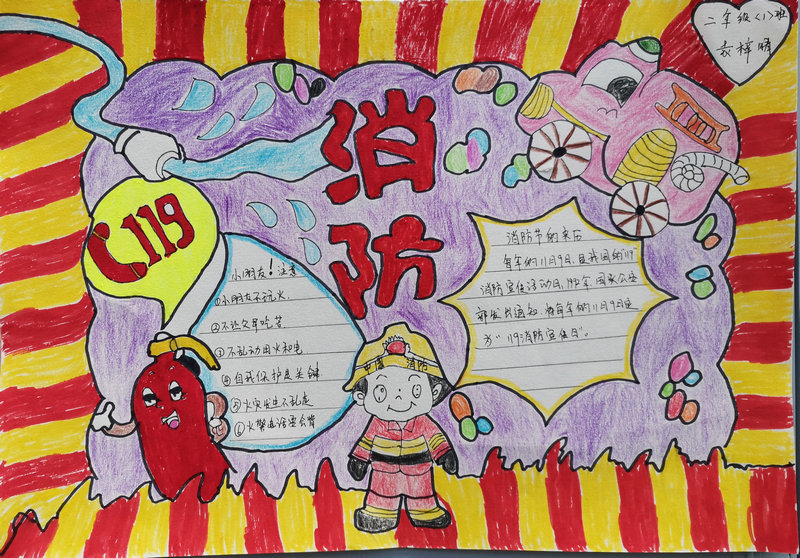 二年级（1）班
袁梓晴
消
防
119
小朋友！注意
①小朋友不玩火
②不让父母吃苦
③不乱动用火和电
④自我保护是关键
⑤火灾发生不乱走
⑥火警电话要会背
消防节的来历
每年的11月9日是我国的"119
消防宣传活动日，1992年，国家公安
部发出通知，将每年的11月9日定
为"119消防宣传日"。
中国 消防